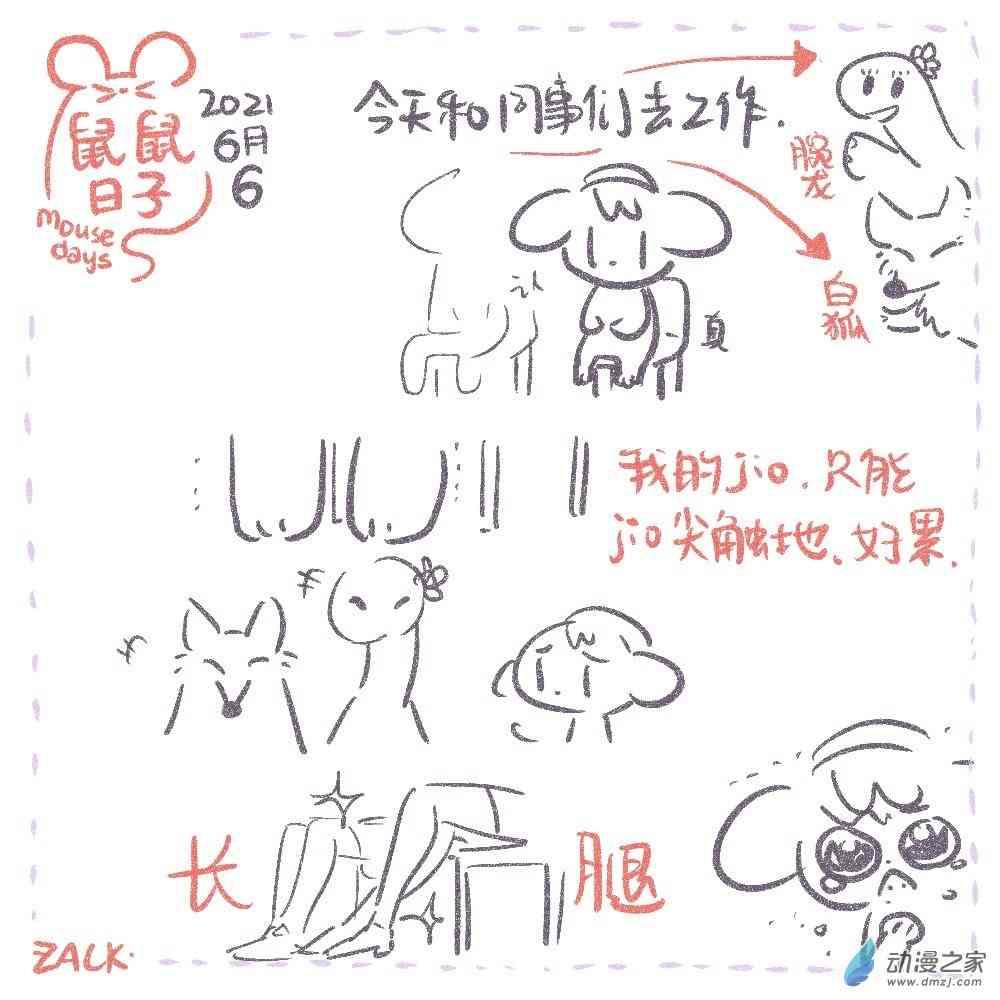 鼠鼠
日子
mouse
days
2021
6月
6
今天和同事们去工作.
腕龙
白狐
认
真
我的jio.只能
jio尖触地.好累.
长
腿
ZALK.
动漫之家
www.dmzj.com